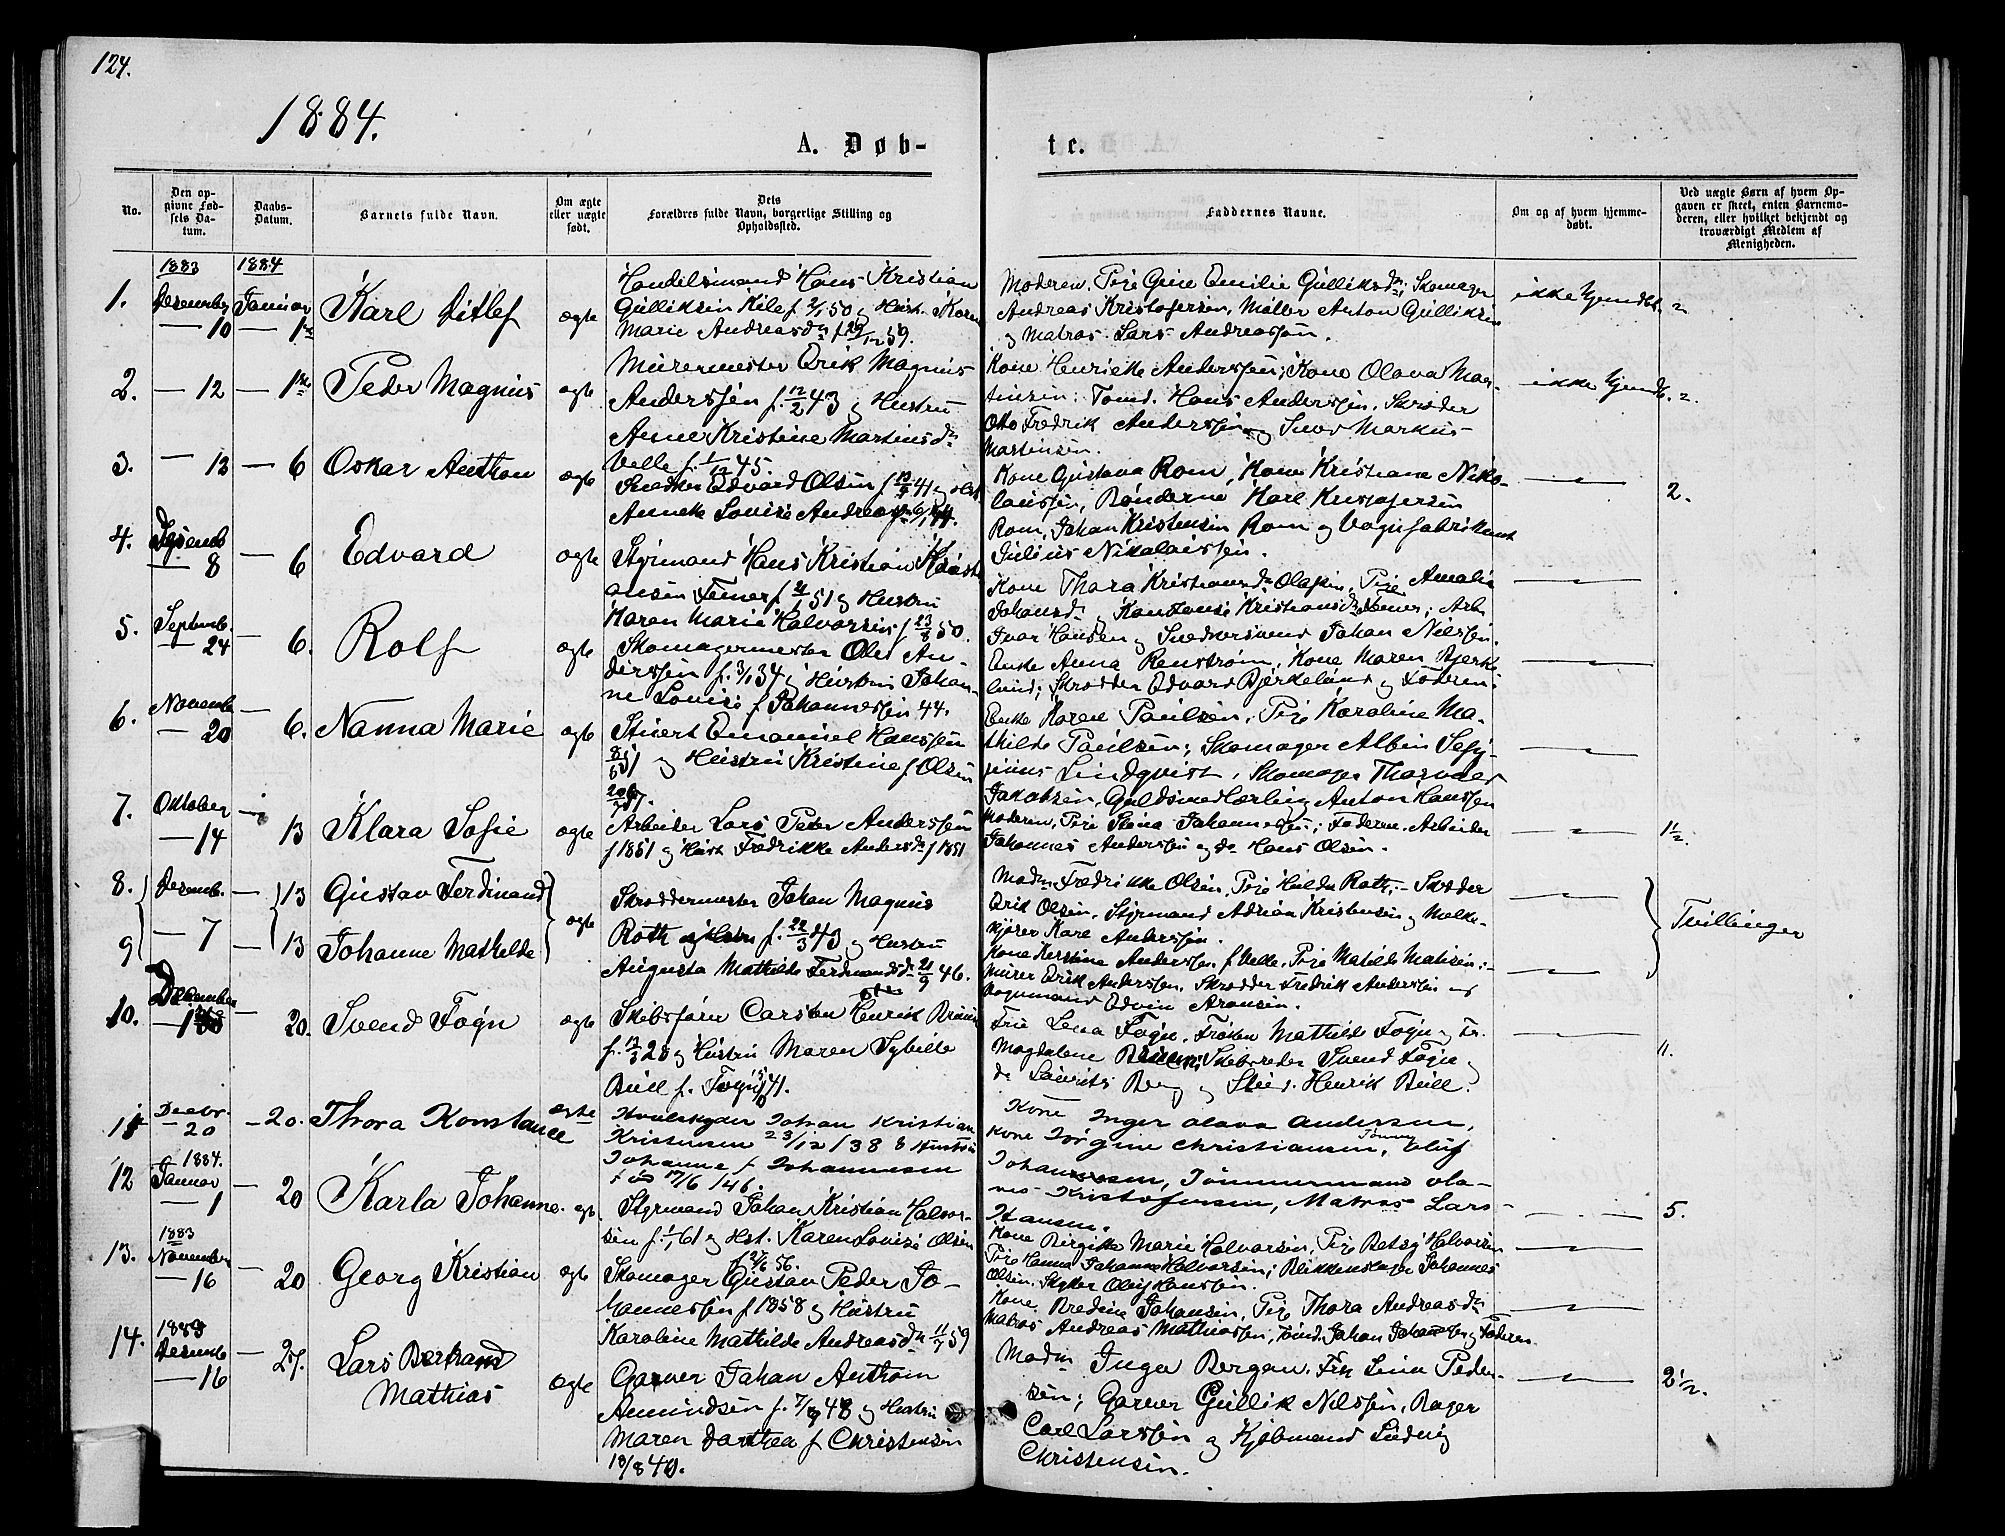 124.
1884.
A. Døb-
te.
No.
Den op-
givne Fød-
sels Da-
tum.
Daabs-
Datum.
Barnets fulde Navn.
Om ægte
eller uægte
født.
Dets
Forældres fulde Navn, borgerlige Stilling og
Opholdssted.
Faddernes Navne.
Om og af hvem hjemme-
døbt.
Ved uægte Børn af hvem Op-
gaven er skeet, enten Barnemo-
deren, eller hvilket bekjendt og
troværdigt Medlem af
Menigheden.
1883 1884
1. Desember Januar Karl Ditlef ægte
— 10 — 1ste
Handelsmand Hans Kristian
Gulliksen Kile f 2/1 50 og Hust. Karen
Marie Andreasdn f 29/12 59.
Moderen, Pige Gine Emilie Gulliksdn; Skomager
Andreas Kristofersen, Møller Anton Gulliksen
og Matros Lars Andreassen.
ikke hjemdbt. 2.
2. — 12 — 1ste Peder Magnus ægte
Murermester Erik Magnus
Anderssen f. 12/2 43 og Hustru
Anne Kristine Martinsdn
Velle f. 1/12 45.
Kone Henrikke Anderssen; Kone Olava Mar-
tinsen; Tømd. Hans Anderssen, Skrædder
Otto Fredrik Anderssen og Snedk Markus
Martinsen.
ikke hjemdb. 2.
3. — 12 — 6 Oskar Anthon ægte
Snedker Edvard Olsen f 41 og Hst
Annette Lovise Andreas 44.
Kone Gustava Rom, Kone Kristiane Niko-
laissen, Bønderne Karl Kristofersen
Rom, Johan Kristensen Rom og Vognfabrikant
Julius Nikolaissen.
2.
4. Desemb
— 8 — 6 Edvard ægte
Styrmand Hans Kristian Kristi
ansen Femer f 51 og Hustru
Karen Marie Halvorsen f 23/8 50.
Kone Thora Kristiansdn Olassen, Pige Amalie
Johansdn og Konstanse Kristiansdn Femer; Arb.
Ivar Hansen og Snedkersvend Johan Nilssen.
5. Septemb.
— 24 — 6. Rolf ægte
Skomagermester Oles An-
derssen f. 3/1 34 og Hustru Johan-
ne Louise f Johannessen 44.
Enke Anna Renstrøm, Kone Maren Bjerke
lund; Skrædder Edvard Bjerkelund og Faderen.
6. Novemb
— 20 — 6. Nanna Marie ægte
Stuert Emanuel Hanssen
51 og Hustru Kristine f Olsen
57.
Enke Karen Paulsen, Pige Karoline Ma-
thilde Paulsen; Skomager Albin Sefy-
rinus Lindqvist, Skomager Thorvald
Jakobsen, Guldsmedlærling Anton Hanssen
7. Oktober
— 14 — 13 Klara Sofie ægte
Arbeider Lars Peter Anderssen
f 1851 og Hust Fredrikke Andersdn f 1851
Moderen, Pige Stina Johannessen; Faderen, Arbeider
Johannes Anderssen og do Hans Olsen.
1½.
8. Desemb. — 13 Gustav Ferdinand ægte
— 7
9 — 13 Johanne Mathilde
Skræddermester Johan Magnus
Roth f. 22/3 43 og Hustru
Augusta Mathilde Ferdinandsdn 21/9 46.
Madm Fredrikke Olsen, Pige Hulda Roth; Skrædder
Erik Olsen, Styrmand Adrian Kristensen og Melke-
kjører Karl Anderssen.
Kone Kerstine Anderssen f Velle, Pige Matilde Matisen;
Murer Erik Anderssen, Skrædder Fredrik Anderssen og
Vognmand Edvin Aronsen.
Tvillinger
10. Desember — 20. Svend Foyn ægte
Skibsfører Carsten Henrik Bruun
f. 28 og Hustru Maren Sybille
Bull f. Foyn 41.
Frue Lena Foyn, Frøken Mathilde Foyn og Fr.
Magdalene; Skibsreder Svend Foyn og
do Laurits Berg og Stud. Henrik Bull.
11.
11 Decbr.
— 20 — 20. Thora Konstance ægte
Hvalskyder Johan Kristian
Kristensen 23/12 / 38 & Hustru
Johanne f Johannesen
17/6 / 46.
Kone Inger Olava Andersen,
Kone Jørgine Christiansen, Oluf
Johannesen, Tømmermand Ola-
ves Kristofersen, Matros Lars
Hansen.
1884.
12 Januar
— 1 — 20 Karla Johanne. ægt.
Styrmand Johan Kristian Halvor-
sen f. 1/1 61 og Hst. Karen Lovise Olsen
f 27/6 56.
Kone Birgitte Marie Halvorsen, Pige Betsy Halvorsen
Pige Hanna Johanne Halvorsen; Blikkenslager Johannes
Olsen, Skytter Oluf Hanssen.
5.
1883
13. November
— 16 — 20 Georg Kristian ægte
Skomager Gustav Peder Jo-
hannessen f 1858 og Hustru
Karoline Mathilde Andreasdn 11/7 59
Kone Bredine Johansen, Pige Thora Andreasdn
Matros Andreas Mathiassen, Tømd. Johan Johannessen og Faderen.
1883
14. Desemb
— 16 — 27. Lars Bertrand
Mathias ægte
Garver Johan Anthon
Amundsen f. 48 og Hustru
Maren Darthea f Christensen
18/8 40.
Madm Inga Bergan, Frk Lina Peder-
sen; Garver Gullik Nilssen, Bager
Carl Larssen og Kjøbmand Ludvig
Christensen.
2½.